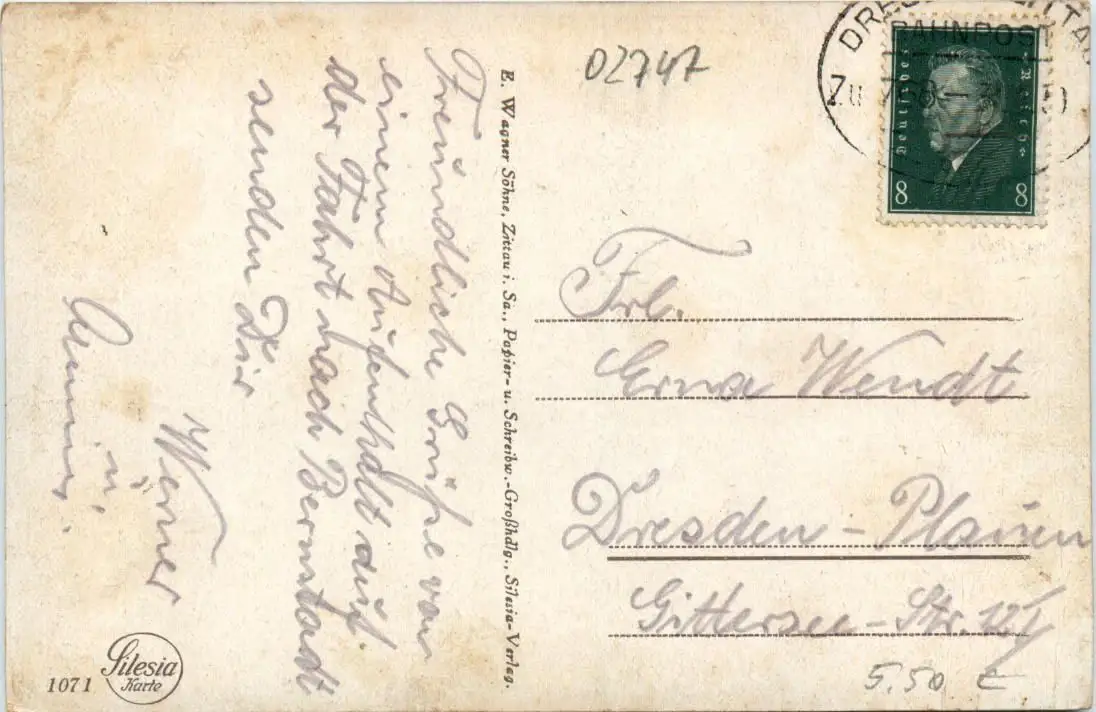 02747
DRESDEN-ZITTAU
BAHNPOST
Deutsches Reich
8 8
Freundliche Grüße von
einem Aufenthalt auf
der Fahrt nach Bernstadt
senden Dir
Werner
u.
E. Wagner Söhne, Zittau i. Sa., Papier- u. Schreibw.-Großhdlg., Silesia-Verlag.
Frl.
Erna Wendt
Dresden-Plauen
Gittersee-Str.
5.50 €
1071
Silesia
Karte